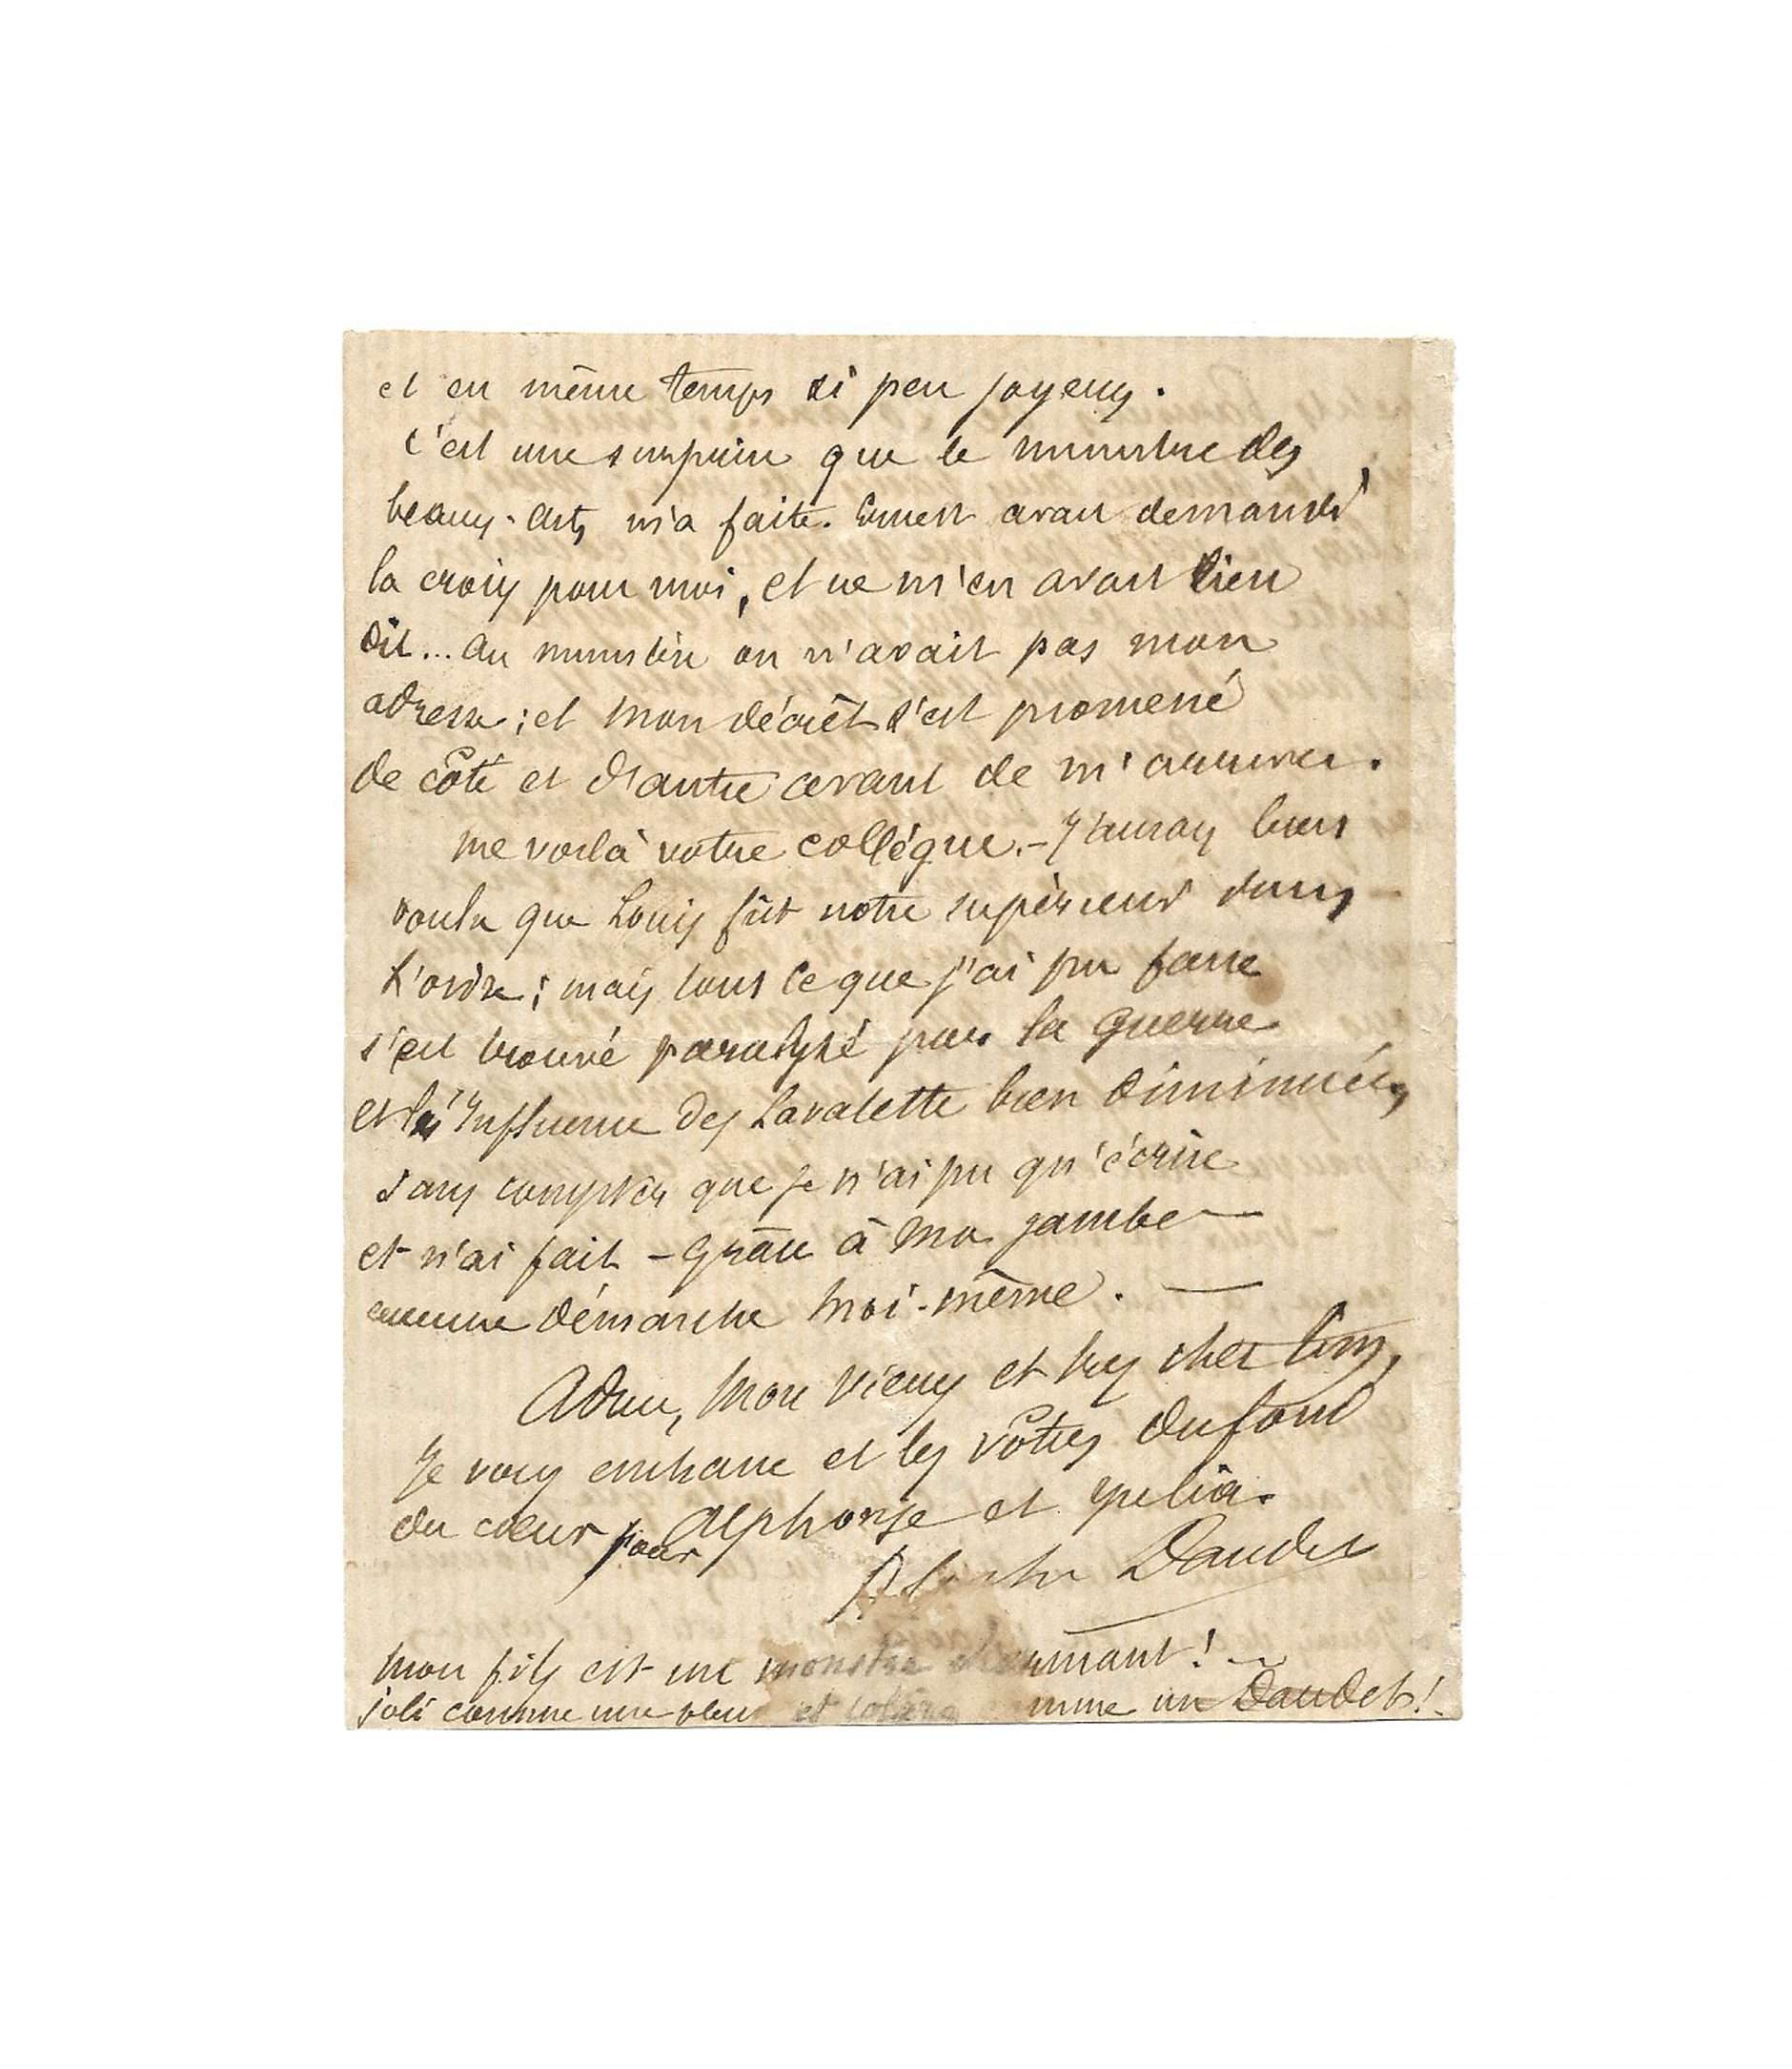 et en même temps si peu joyeux.
C'est une surprise que le ministre des
beaux-arts m'a faite. Ernest avait demandé
la croix pour moi, et ne m'en avait rien
dit... au ministère on n'avait pas mon
adresse; et mon décret s'est promené
de côté et d'autre avant de m'arriver.
me voilà votre collègue. - J'aurais bien
voulu que Louis fût notre supérieur dans
L'ordre; mais tout ce que j'ai pu faire
s'est trouvé paralysé par la guerre
et l'influence des Lavalette bien diminuée,
sans compter que je n'ai pu qu'écrire
et n'ai fait - grâce à ma jambe -
aucune démarche moi-même. -
Adieu, mon vieux et très cher Tim,
Je vous embrasse et les vôtres du fond
du cœur pour Alphonse et Julia.
Daudet
mon fils est un monstre charmant! -
joli comme une fleur et colère comme un Daudet!